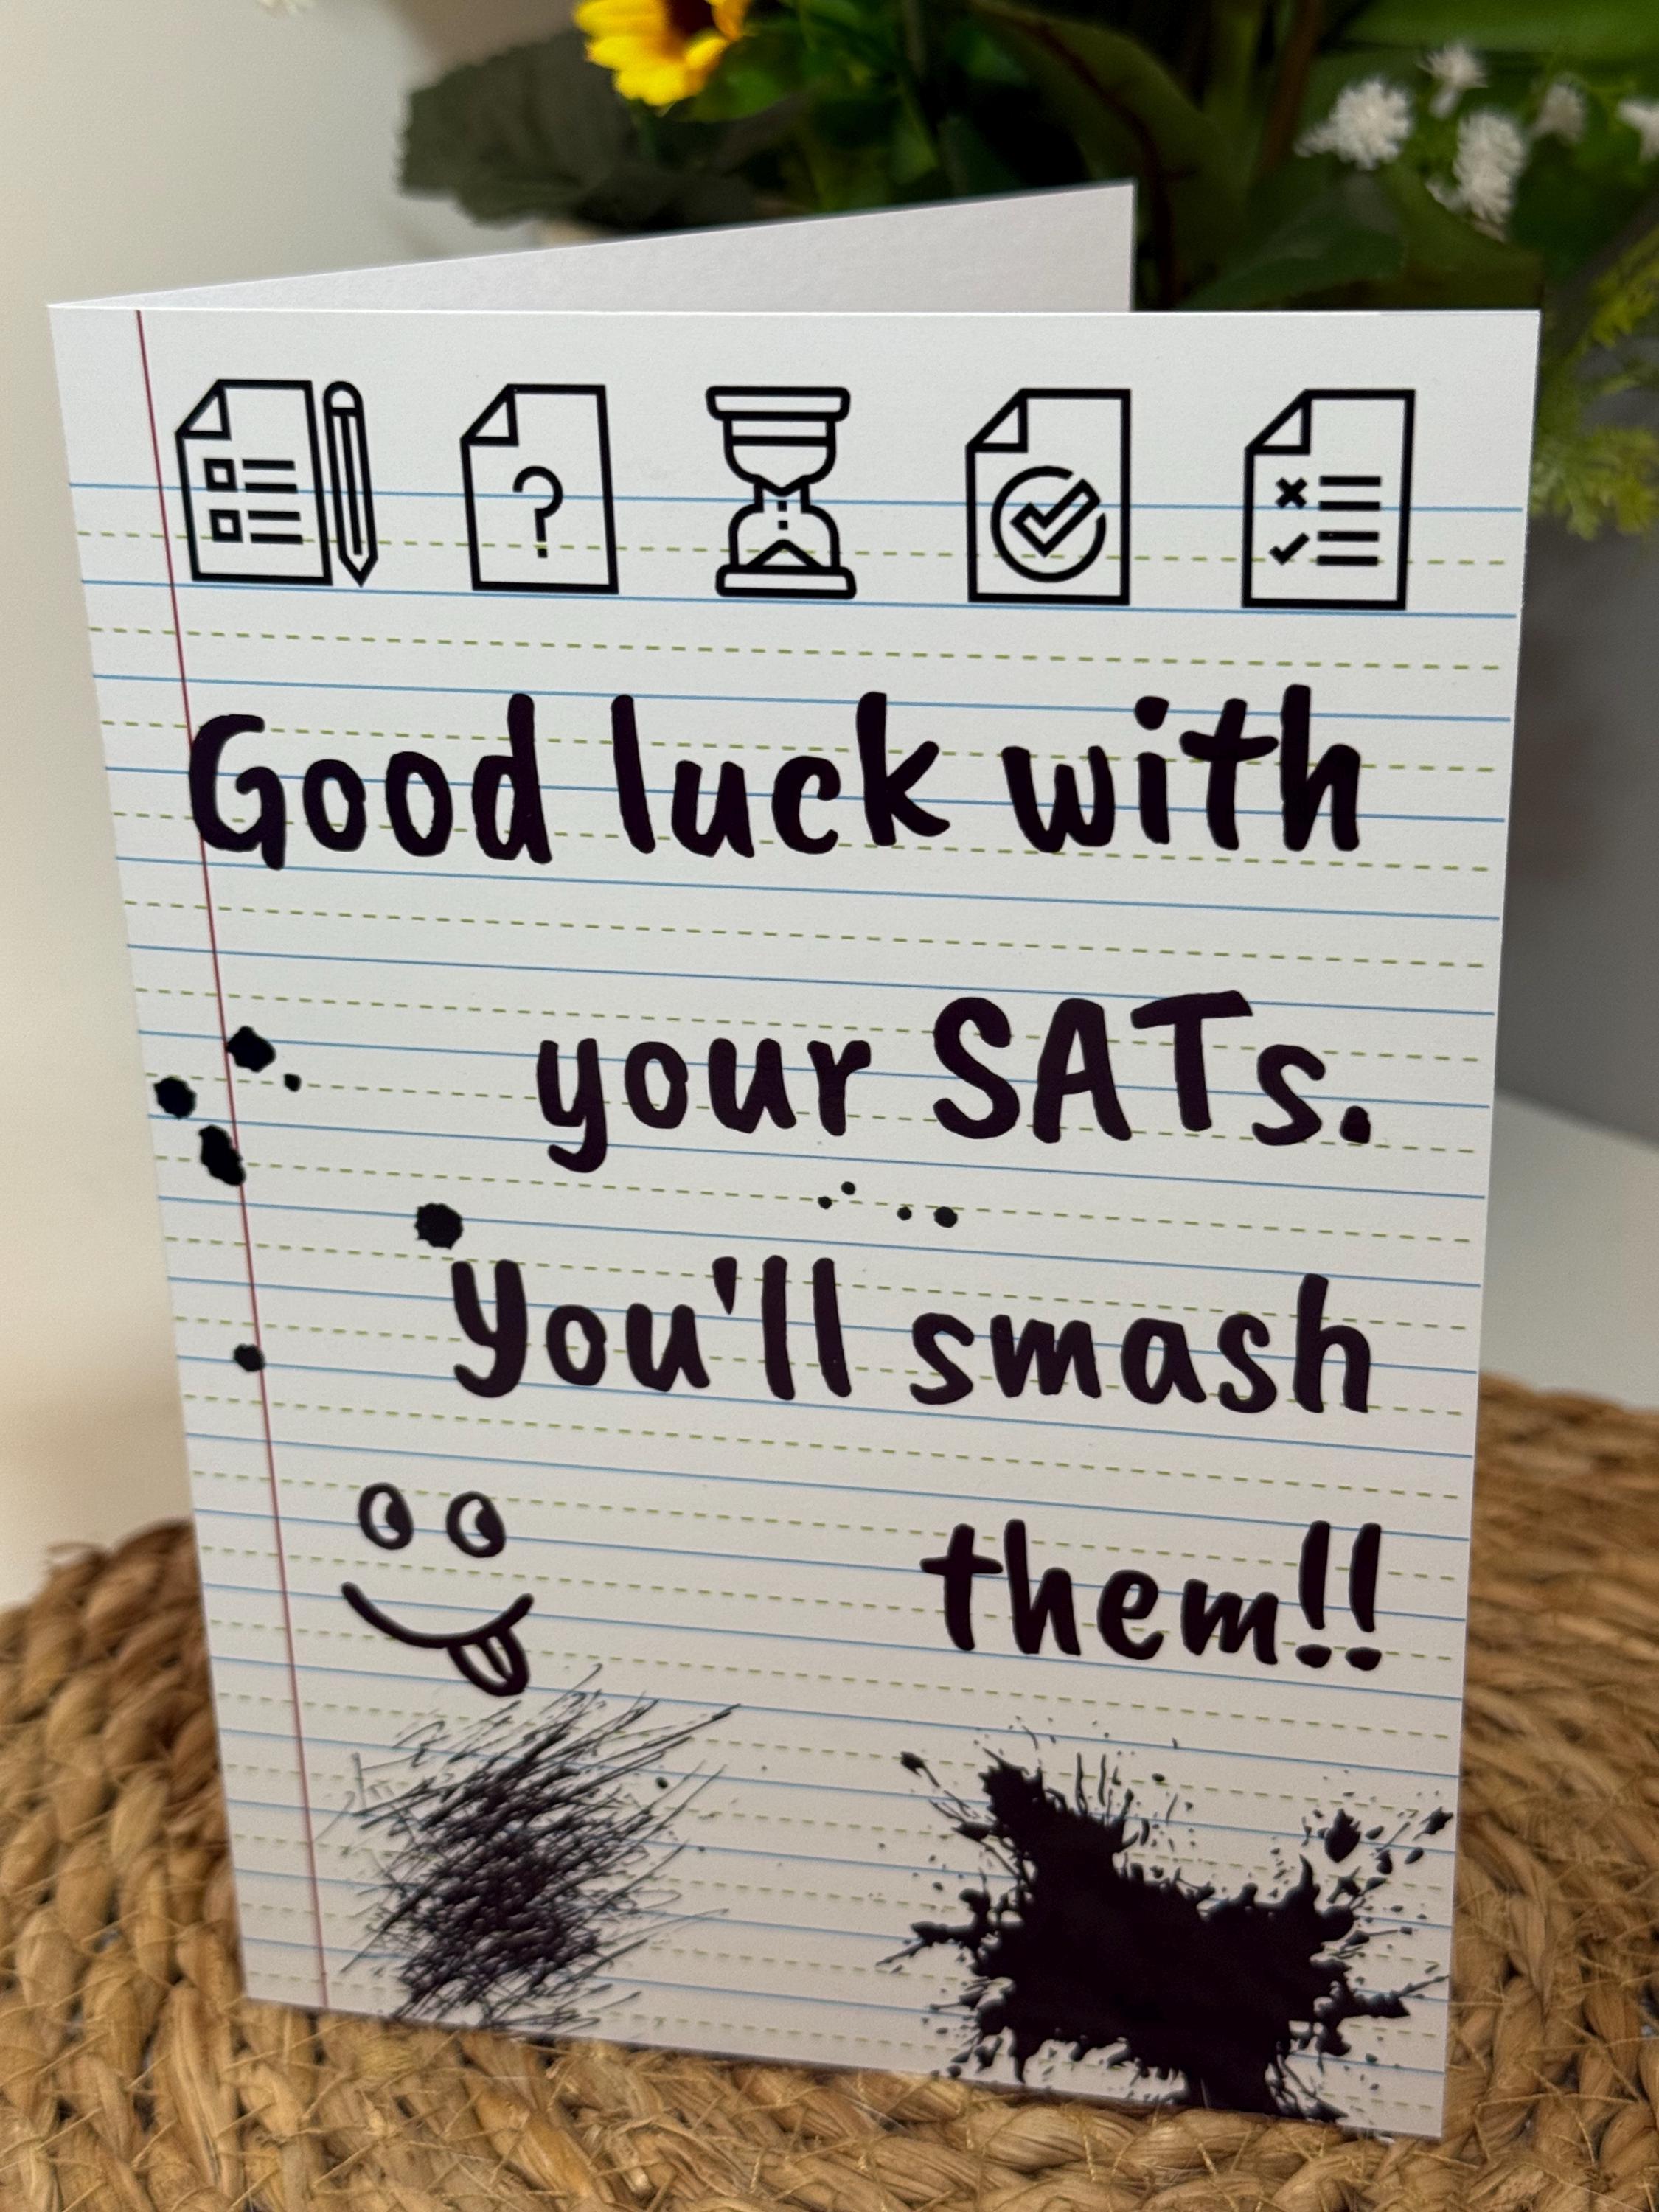 Good luck with
your SATs.
You'll smash
them!!